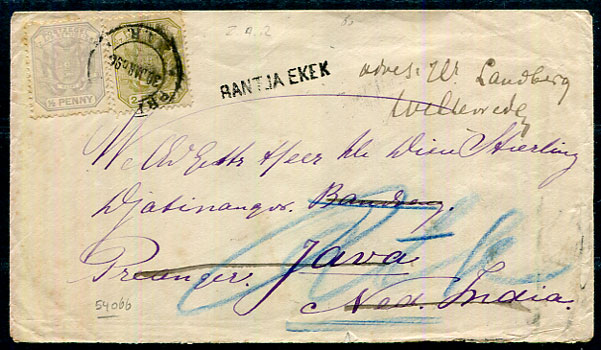 Z.A.R
½ PENNY
2
Z.A.R.
30 MAR 96
RANTJA EKEK
adres: Mr Landberg
Weltevreden
WelEdGestr Heer
Stierling
Djatinangor. Bandoeng.
Preanger. Java
Ned. India.
54066